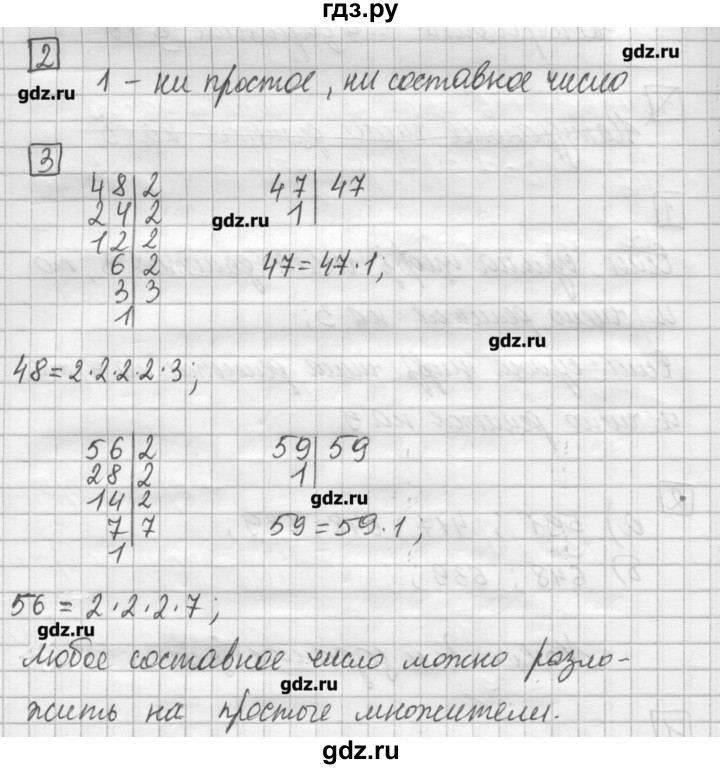 гдз.ру
2
gdz.ru
gdz.ru
1 – ни простое, ни составное число
3
48|2
24|2
12|2
6|2
3|3
1|
47|47
1|
gdz.ru
47=47·1;
gdz.ru
48=2·2·2·2·3;
56|2
28|2
14|2
7|7
1|
59|59
1|
gdz.ru
59=59·1;
56 = 2·2·2·7;
gdz.ru
Любое составное число можно разло-
gdz.ru
жить на простые множители.
gdz.ru